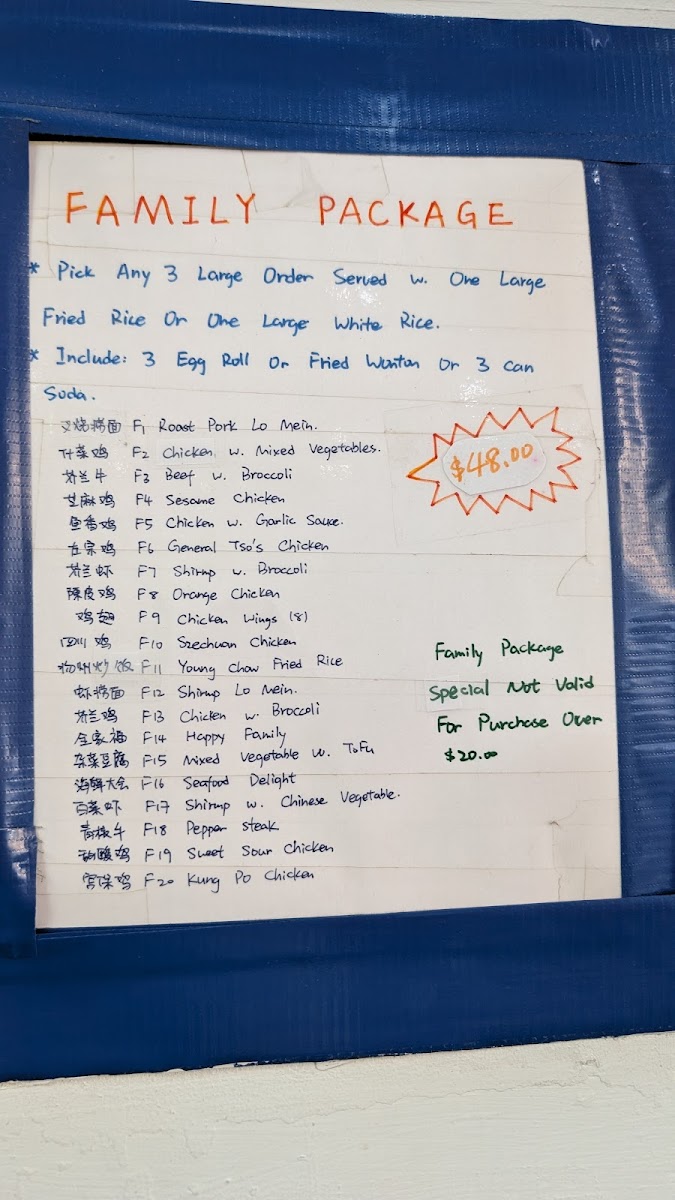 FAMILY PACKAGE
* Pick Any 3 Large Order Served w. One Large
Fried Rice Or One Large White Rice.
* Include: 3 Egg Roll Or Fried Wonton Or 3 Can
Soda.
叉烧捞面 F1 Roast Pork Lo Mein.
什菜鸡 F2 Chicken w. Mixed Vegetables.
$48.00
芥兰牛 F3 Beef w. Broccoli
芝麻鸡 F4 Sesame Chicken
鱼香鸡 F5 Chicken w. Garlic Sauce.
左宗鸡 F6 General Tso's Chicken
芥兰虾 F7 Shirmp w. Broccoli
陳皮鸡 F8 Orange Chicken
鸡翅 F9 Chicken Wings (8)
四川鸡 F10 Szechuan Chicken
扬州炒饭 F11 Young Chow Fried Rice
虾捞面 F12 Shirmp Lo Mein.
芥兰鸡 F13 Chicken w. Broccoli
全家福 F14 Happy Family
杂菜豆腐 F15 Mixed Vegetable w. Tofu
海鲜大会 F16 Seafood Delight
百菜虾 F17 Shirmp w. Chinese Vegetable.
青椒牛 F18 Pepper steak
甜酸鸡 F19 Sweet Sour Chicken
宫保鸡 F20 Kung Po Chicken
Family Package
Special Not Valid
For Purchase Over
$20.00